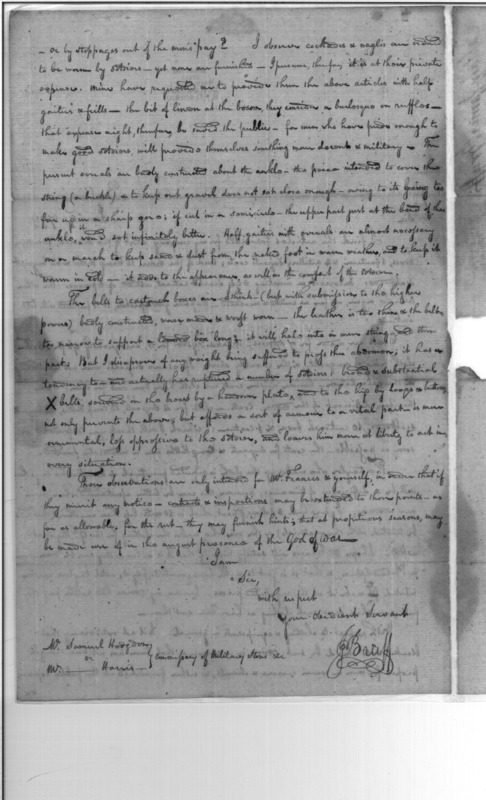 - or by stoppages out of the men's pay? I observe cockades & eagles are ordered
to be worn by soldiers - yet none are furnished - I presume, therefore it is at their private
expense. Mine have requested me to provide them the above articles with half
gaiters & frills - the bit of linen at the bosom, they entitle a burlesque on ruffles -
that expense might, therefore be saved the public - for men who have pride enough to
make good soldiers, will provide themselves something more decent & military - The
present overalls are badly constructed about the ankle - the piece intended to cover the
string (or buckle) & to keep out gravel does not set close enough - owing to its going too
far up in a sharp gore; if cut in a semicircle - the upper part just at the bend of the
ankle, it would set infinitely better. Half gaiters with overalls are almost necessary
on a march to keep sand & dust from the naked foot in warm weather, and to keep it
warm in cold - it adds to the appearance, as well as the comfort of the soldier.
The belts to cartouch boxes are I think (but with submission to the higher
powers) badly constructed, worse made & worst worn - the leather is too thin & the belts
too narrow to support a loaded box long; it will halo into a mere string and then
parts. But I disapprove of any weight being suffered to press the abdomen; it has a
tendency to - and actually has ruptured a number of soldiers: broad & substantial
X belts, secured in the breast by a handsom plate, and to the hip by loops & buttons,
not only prevents the above, but affords a sort of armour to a vital part - is more
ornamental, less oppressive to the soldier, and leaves him more at liberty to act in
every situation.
These observations are only intended for Mr. Frances & yourself, in order that if
they merit any notice - contracts & inspections may be extended to those points - as
far as allowable, for the rest - they may furnish hints, that at propitious seasons, may
be made use of in the august presence of the God of War -
I am
Sir,
with respect
Your Obedient Servant
Mr Samuel Hodgdon
or
Mr. —— Harris } Commissary of Military Stores &c
J Bruff